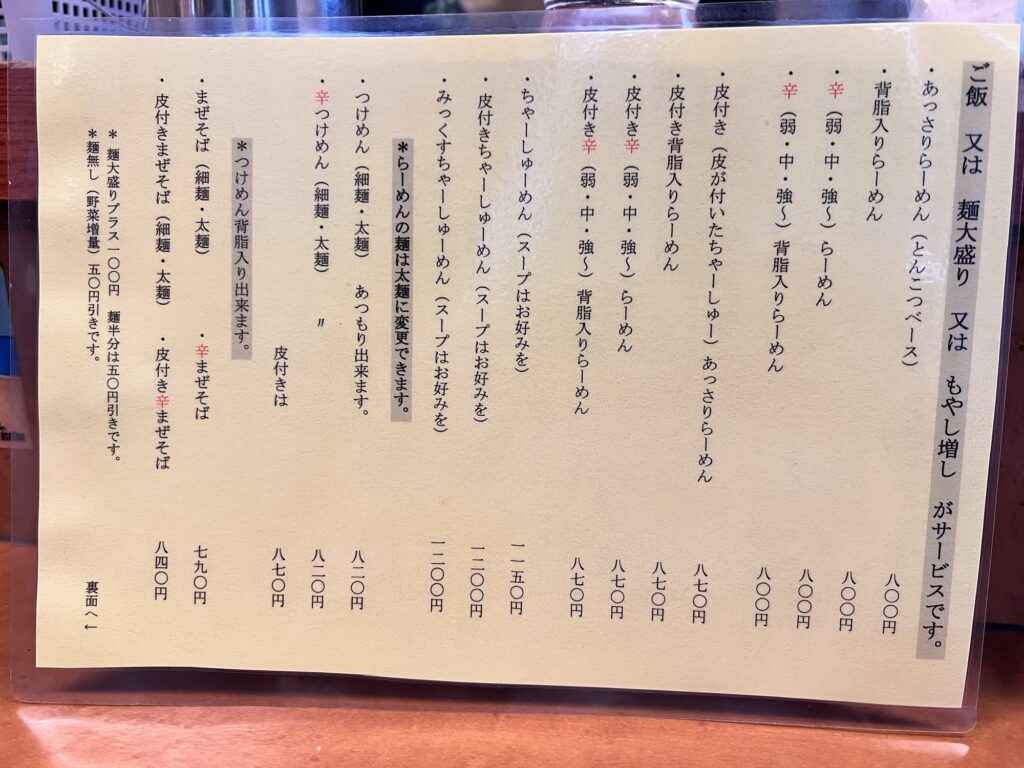 ご飯 又は 麺大盛り 又は もやし増し がサービスです。
・あっさりらーめん（とんこつベース） 八〇〇円
・背脂入りらーめん 八〇〇円
・辛（弱・中・強〜）らーめん 八〇〇円
・辛（弱・中・強〜）背脂入りらーめん 八〇〇円
・皮付き（皮が付いたちゃーしゅー）あっさりらーめん 八七〇円
・皮付き背脂入りらーめん 八七〇円
・皮付き辛（弱・中・強〜）らーめん 八七〇円
・皮付き辛（弱・中・強〜）背脂入りらーめん 八七〇円
・ちゃーしゅーめん（スープはお好みを） 一一五〇円
・皮付きちゃーしゅーめん（スープはお好みを） 一二〇〇円
・みっくすちゃーしゅーめん（スープはお好みを） 一二〇〇円
＊らーめんの麺は太麺に変更できます。
・つけめん（細麺・太麺） あつもり出来ます。 八二〇円
・辛つけめん（細麺・太麺） 〃 八二〇円
皮付きは 八七〇円
＊つけめん背脂入り出来ます。
・まぜそば（細麺・太麺） ・辛まぜそば 七九〇円
・皮付きまぜそば（細麺・太麺） ・皮付き辛まぜそば 八四〇円
＊ 麺大盛りプラス一〇〇円 麺半分は五〇円引きです。
＊麺無し（野菜増量）五〇円引きです。 裏面へ←